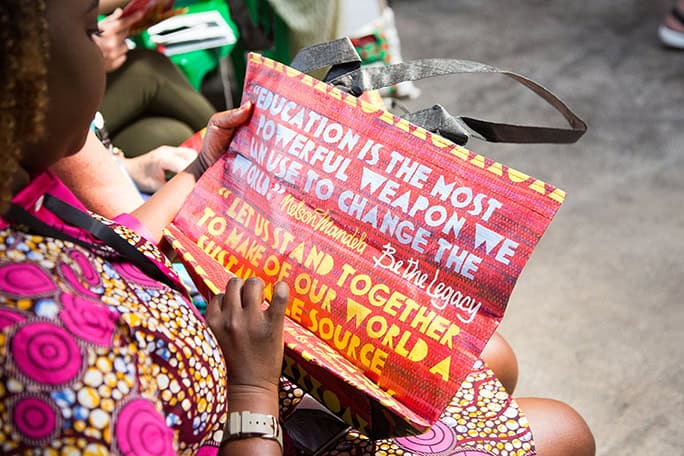 "EDUCATION IS THE MOST
POWERFUL WEAPON WE
CAN USE TO CHANGE THE
WORLD"
Nelson Mandela
Be the Legacy
"LET US STAND TOGETHER
TO MAKE OF OUR WORLD A
SUSTAINABLE SOURCE